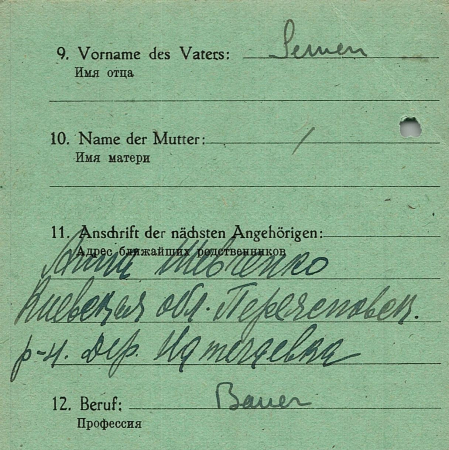 9. Vorname des Vaters: Semen
Имя отца
10. Name der Mutter: /
Имя матери
11. Anschrift der nächsten Angehörigen:
Адрес ближайших родственников
Анна Шевченко
Киевская обл. Переяславск.
р-н. дер.
12. Beruf: Bauer
Профессия